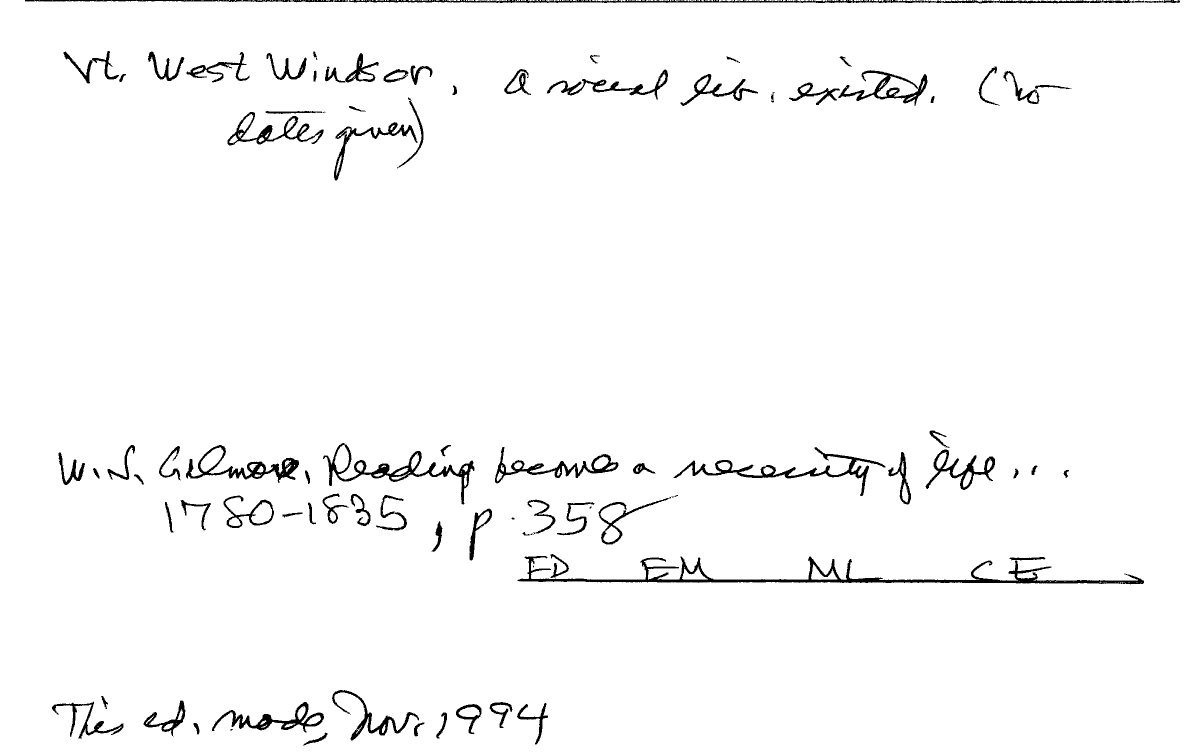 Vt. West Windsor. A social lib. existed. (No
dates given)
W.J. Gilmore, Reading becomes a necessity of life...
1780-1835, p. 358
ED EM ML CE
This cd. made, Nov. 1994